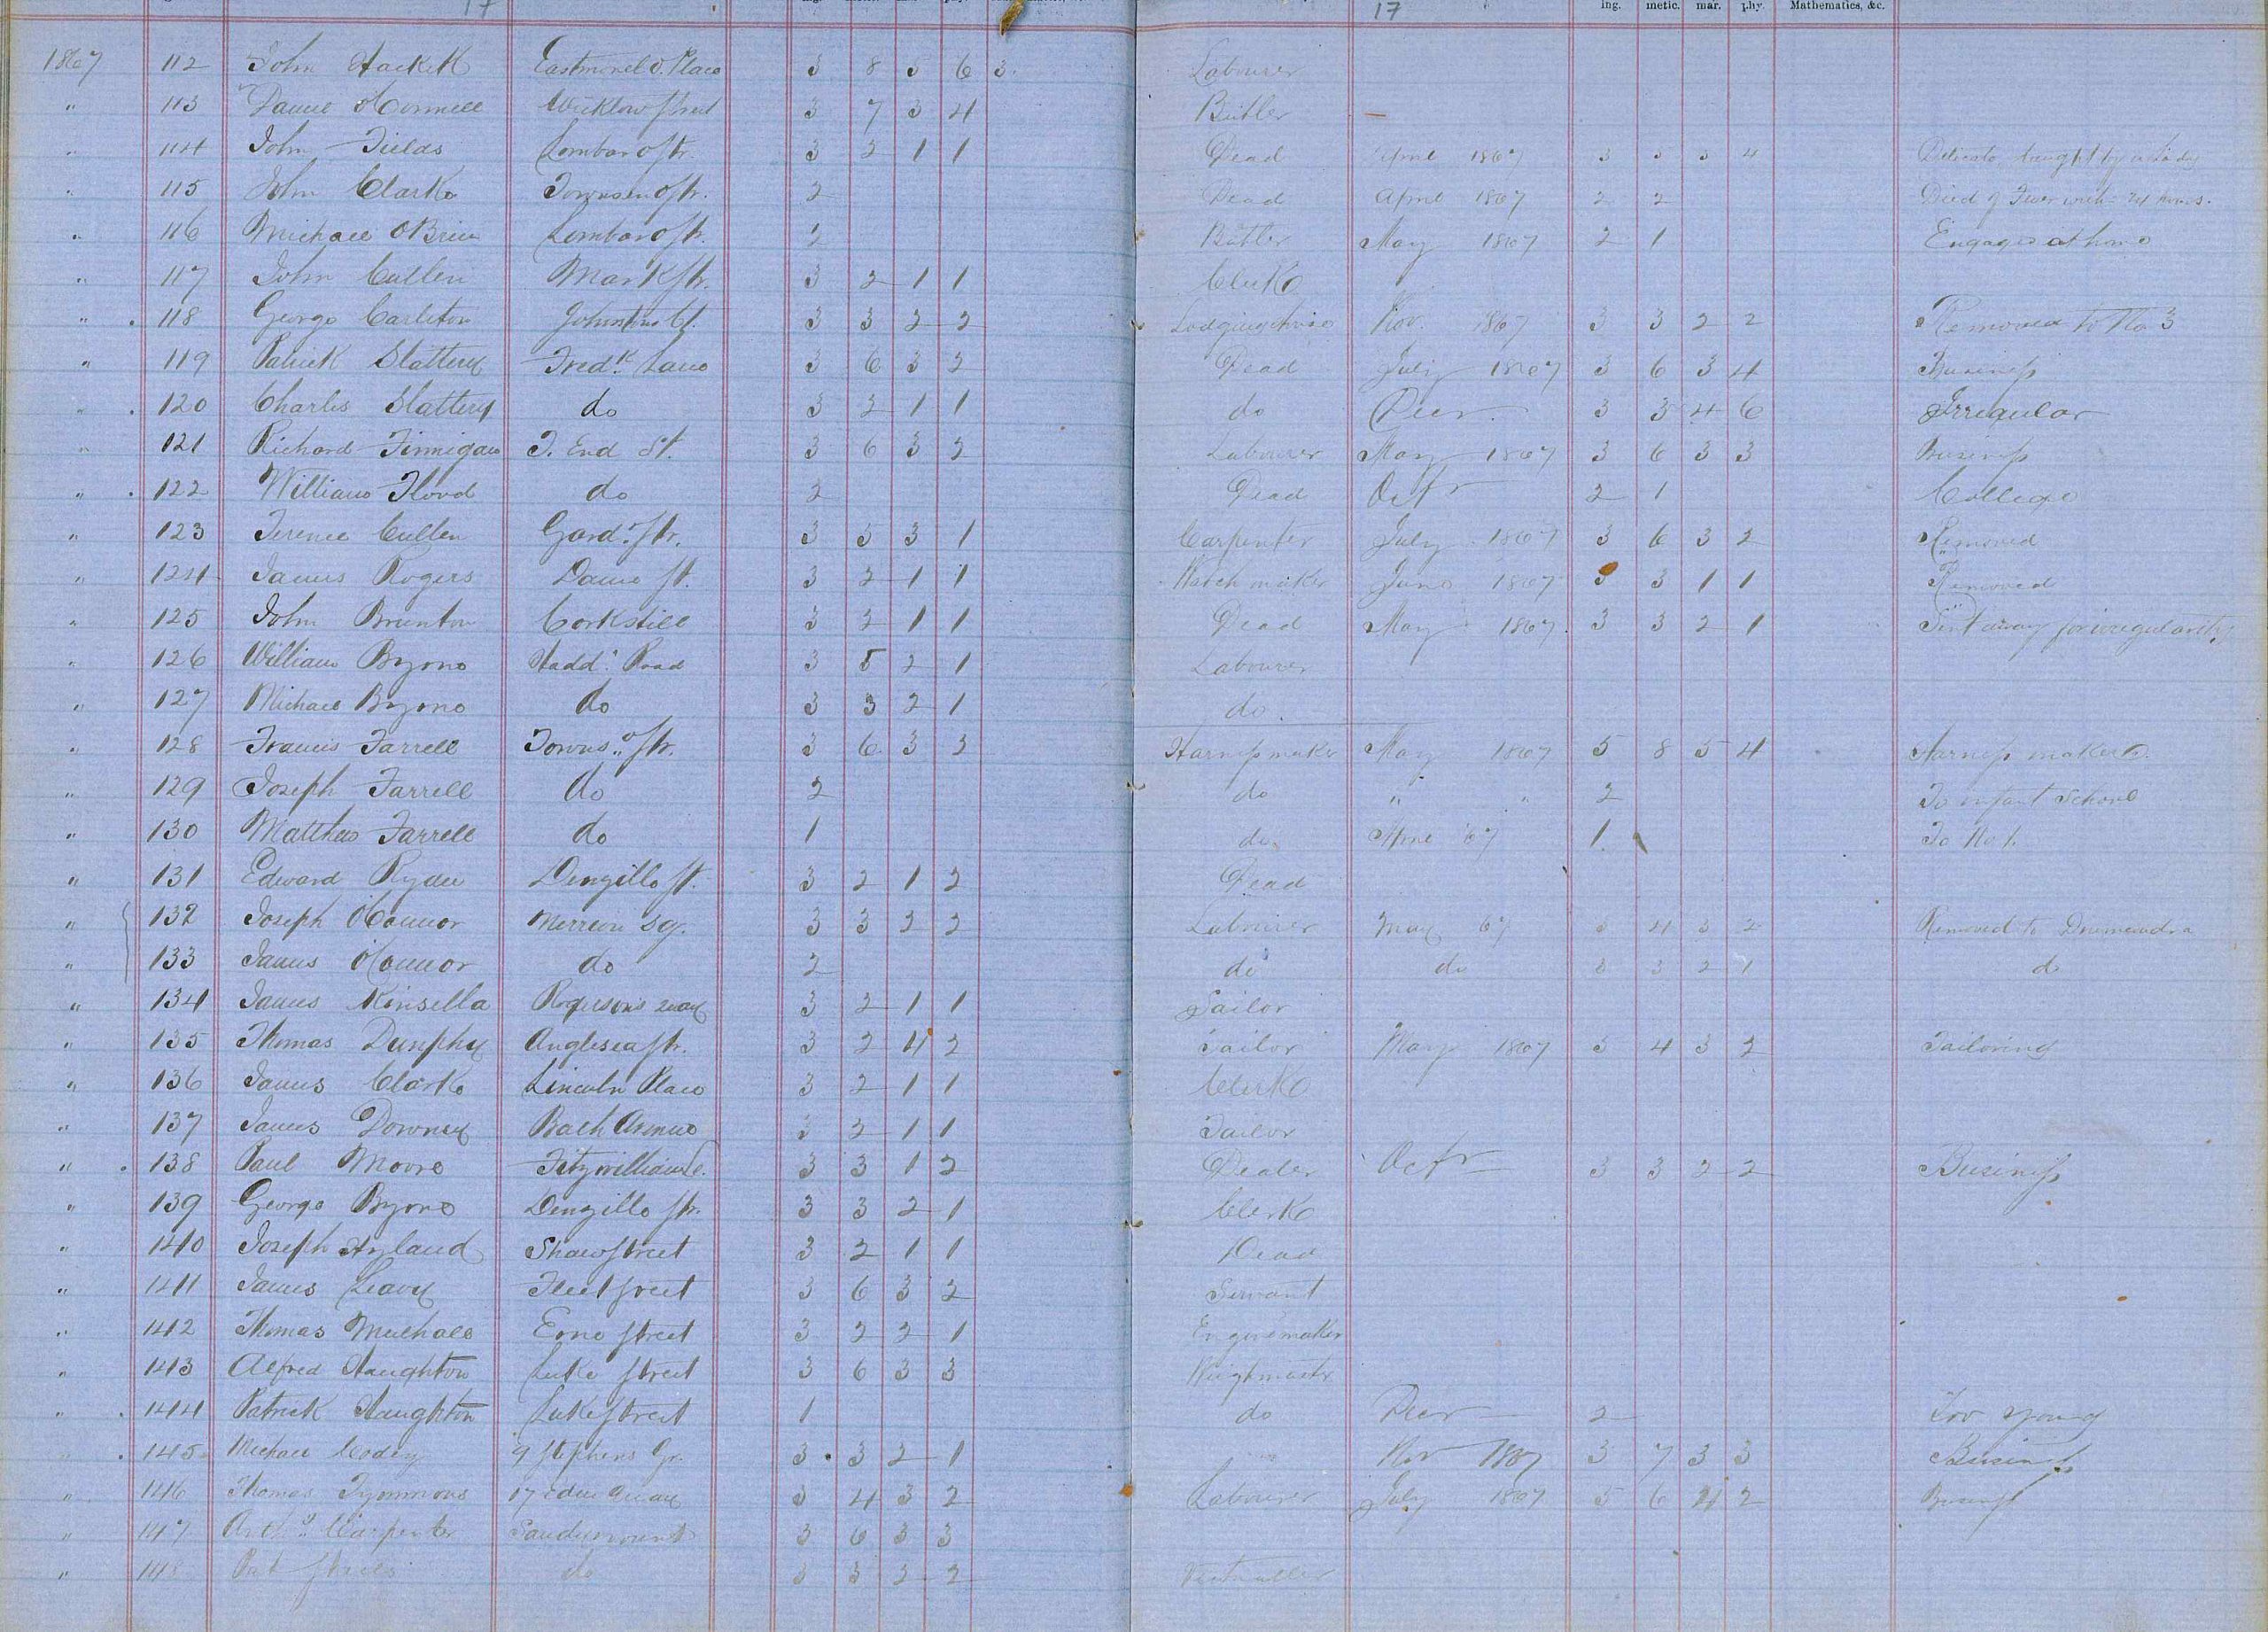 17 17 ing. metic. mar. phy. Mathematics, &c.
1867 112 John Hackett Place 3 8 5 6 3 Labourer
" 113 Daniel O'Connell Wicklow Street 3 7 3 4 Butler —
" 114 John Fields Lombard Str. 3 2 1 1 Dead April 1867 3 3 4 Delicate taught by a Lady
" 115 John Clarke Townsend Str. 2 Dead April 1867 2 2 Died of Fever 24 hours.
" 116 Michael O'Brien Lombard Str. 2 Butler May 1867 2 1 Engaged at home
" 117 John Cullen Mark Str. 3 2 1 1 Clerk
" 118 George Carleton Johnstons Ct. 3 3 2 2 Lodginghouse Nov. 1867 3 3 2 2 Removed to No 3
" 119 Patrick Slattery Fredk. Lane 3 6 3 2 Dead July 1867 3 6 3 4 Business
" 120 Charles Slattery do 3 2 1 1 do Decr. 3 3 4 6 Irregular
" 121 Richard Finnigan T. End St. 3 6 3 2 Labourer May 1867 3 6 3 3 Business
" 122 William Flood do 2 Dead Octr 2 1 College
" 123 Terence Cullen Gardr. Str. 3 5 3 1 Carpenter July 1867 3 6 3 2 Removed
" 124 James Rogers Dame St. 3 2 1 1 Watch maker June 1867 3 3 1 1 Removed
" 125 John Brunton Corkhill 3 2 1 1 Dead May 1867. 3 3 2 1 Sent away for irregularity
" 126 William Byrne Hadd. Road 3 5 2 1 Labourer
" 127 Michael Byrne do 3 3 2 1 do.
" 128 Francis Farrell Townsd. Str. 3 6 3 3 Harness maker May 1867 5 8 5 4 Harness maker
" 129 Joseph Farrell do 2 do " " 2 To infant School
" 130 Matthew Farrell do 1 do April 67 1. To No 1.
" 131 Edward Ryder Denzille St. 3 2 1 2 Dead
" 132 Joseph O'Connor Merrion Sq. 3 3 2 2 Labourer May 67 3 4 3 2 Removed to
" 133 James O'Connor do 2 do do 3 3 2 1 do
" 134 James Kinsella Rogersons Quay 3 2 1 1 Sailor
" 135 Thomas Dunphy Anglesea Str. 3 2 4 2 Tailor May 1867 3 4 3 2 Tailoring
" 136 James Clarke Lincoln Place 3 2 1 1 Clerk
" 137 James Downey Bath Avenue 3 2 1 1 Tailor
" 138 Paul Moore Fitzwilliam 3 3 1 2 Dealer Octr 3 3 2 2 Business
" 139 George Byrne Denzille Str. 3 3 2 1 Clerk
" 140 Joseph Hyland Shaw Street 3 2 1 1 Dead
" 141 James Leavy Fleet Street 3 6 3 2 Servant
" 142 Thomas Mulhall Erne Street 3 2 2 1 Enginemaker
" 143 Alfred Naughton Luke Street 3 6 3 3 Weighmaster
" 144 Patrick Naughton Luke Street 1 do Decr 2 Too young
" 145 Michael Codey 9 Stephens Gr. 3 3 2 1 Nov 1867 3 7 3 3 Business
" 146 Thomas 17 Eden Quay 3 4 3 2 Labourer July 1867 5 6 4 2 Business
" 147 Carpenter Sandymount 3 6 3 3
" 148 Pat do 3 3 2 2 Vintner